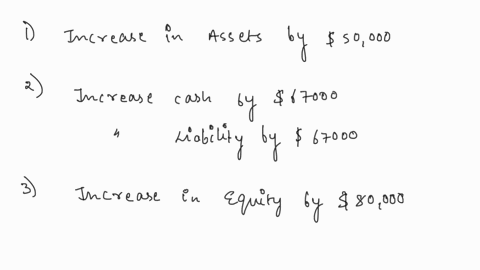 1) Increase in Assets by $50,000
2) Increase cash by $67000
" Liability by $67000
3) Increase in Equity by $80,000